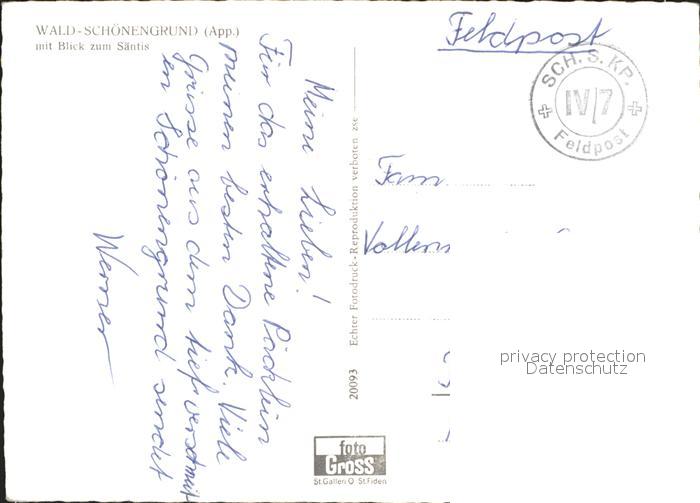 WALD-SCHÖNENGRUND (App.)
mit Blick zum Säntis
Meine Lieben!
Für das erhaltene Päcklein
meinen besten Dank. Viele
Grüsse aus dem tief verschneit
en Schönengrund sendet
Werner
20093 Echter Fotodruck-Reproduktion verboten zsc
foto
Gross
St.Gallen O St.Fiden
Feldpost
SCH. S. KP.
IV/7
Feldpost
Fam
privacy protection
Datenschutz